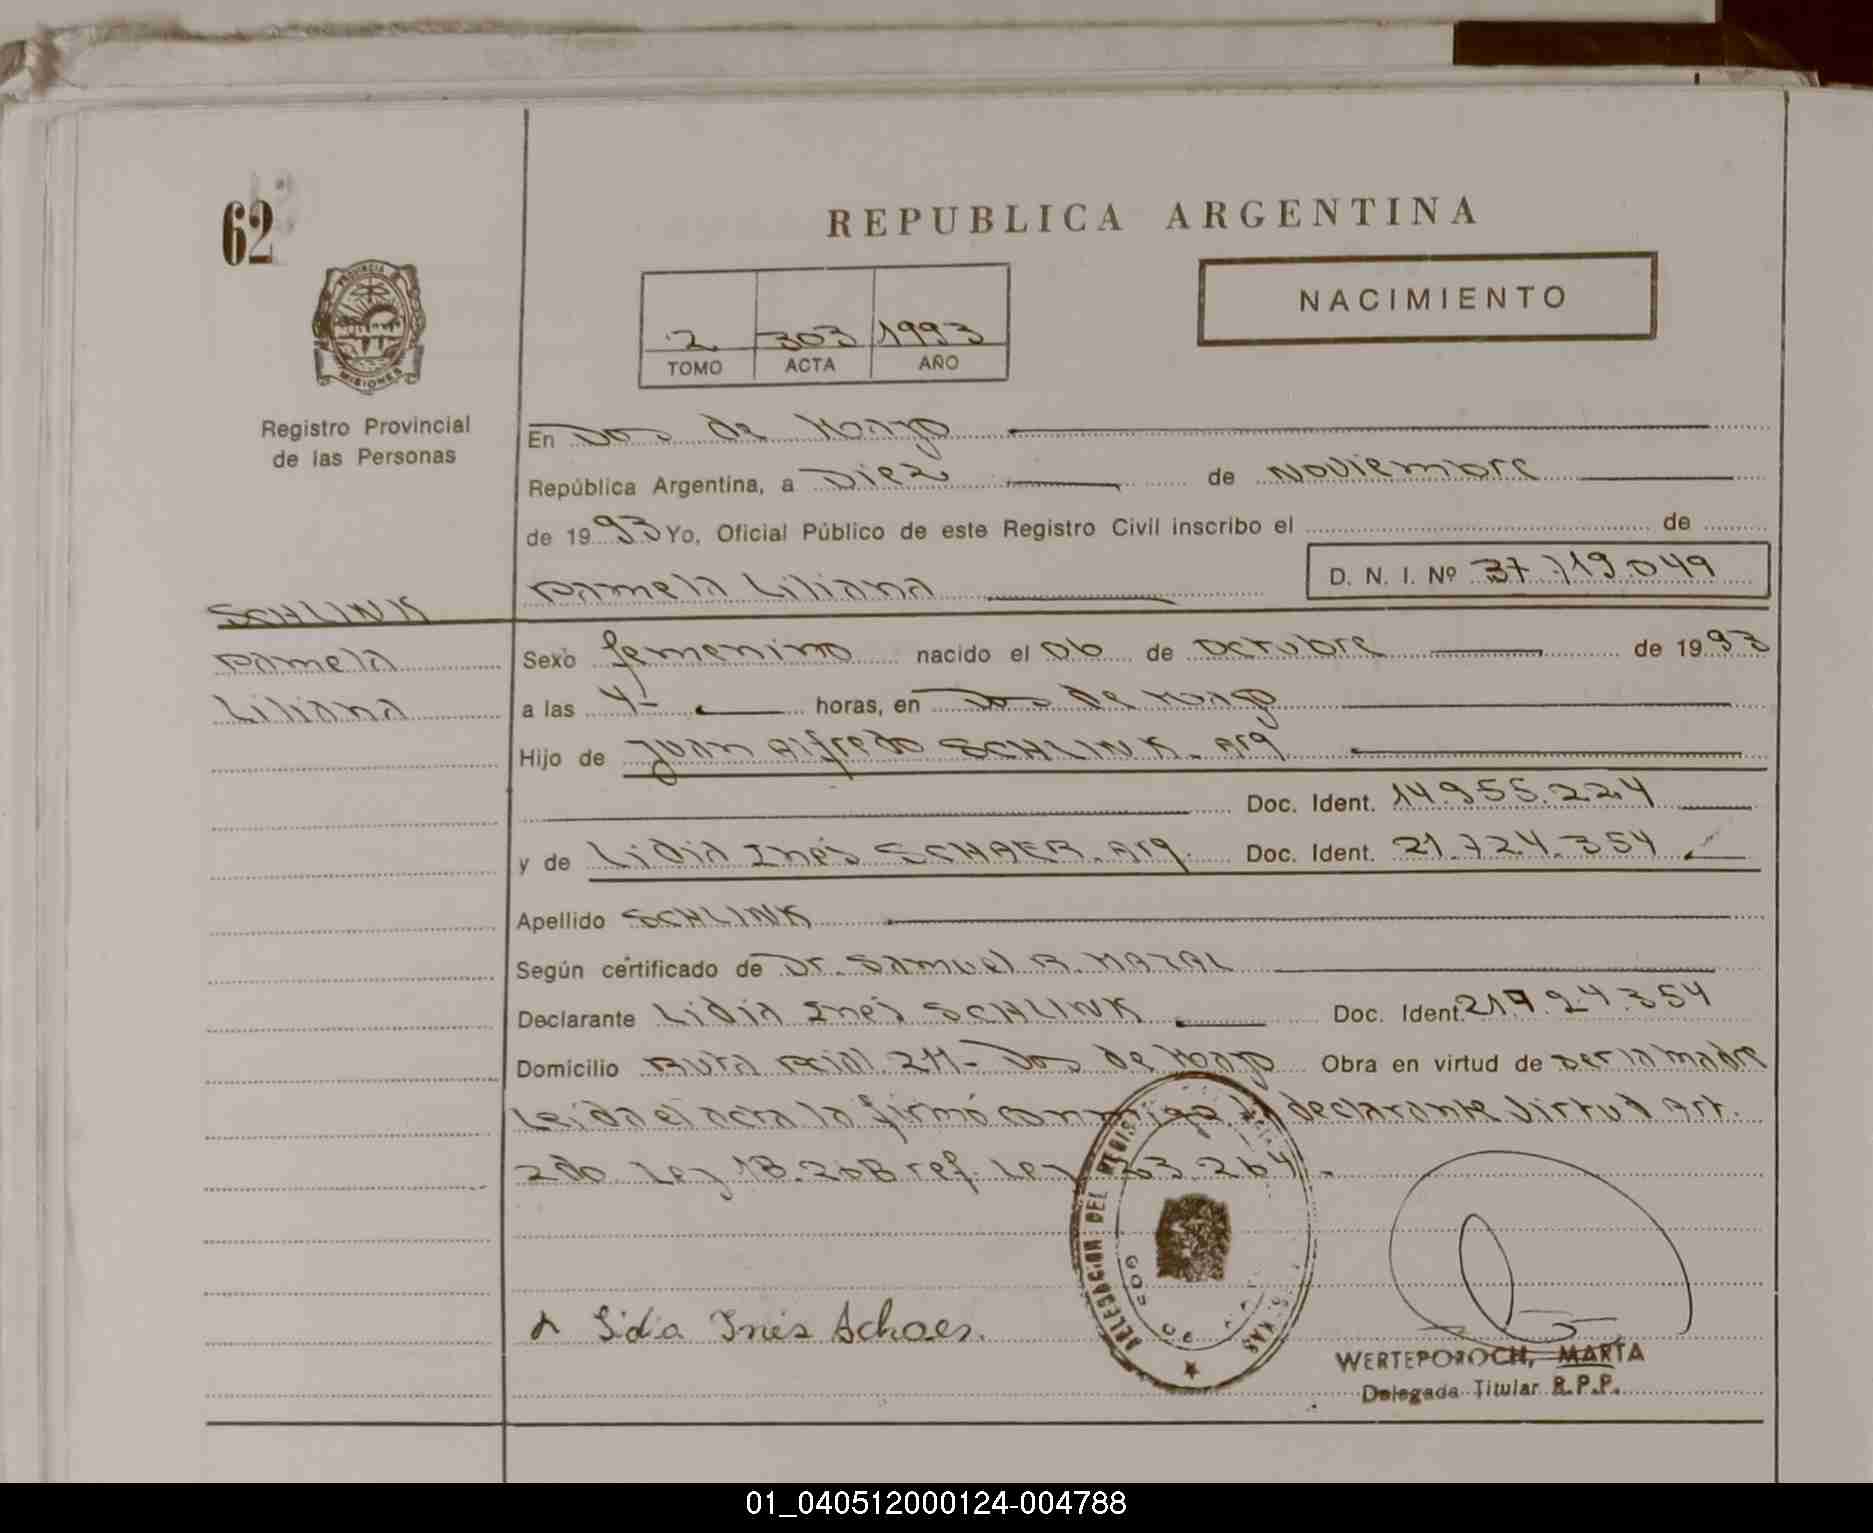 62
REPUBLICA ARGENTINA
NACIMIENTO
2 303 1993
TOMO ACTA AÑO
PROVINCIA
MISIONES
Registro Provincial
de las Personas
En Dos de Mayo
República Argentina, a Diez de Noviembre
de 1993 Yo, Oficial Público de este Registro Civil inscribo el de
Pamela Liliana D. N. I. Nº 37.719.049
SCHLINK
Pamela
Liliana
Sexo femenino nacido el 06 de Octubre de 1993
a las 4- horas, en Dos de Mayo
Hijo de Juan Alfredo SCHLINK. Arg
Doc. Ident. 14.955.224
y de Lidia Inés SCHAER. Arg. Doc. Ident. 21.724.354
Apellido SCHLINK
Según certificado de Dr. Samuel R.
Declarante Lidia Inés SCHLINK Doc. Ident. 21.724.354
Domicilio Ruta 211- Dos de Mayo Obra en virtud de ser la madre
Leída el acta la firmó conmigo la declarante virtud Art.
2do. Ley 18. ref. Ley
DELEGACION DEL REGIS
Lidia Inés Schaer.
WERTEPOROCH, MARTA
Delegada Titular R.P.P.
01_040512000124-004788